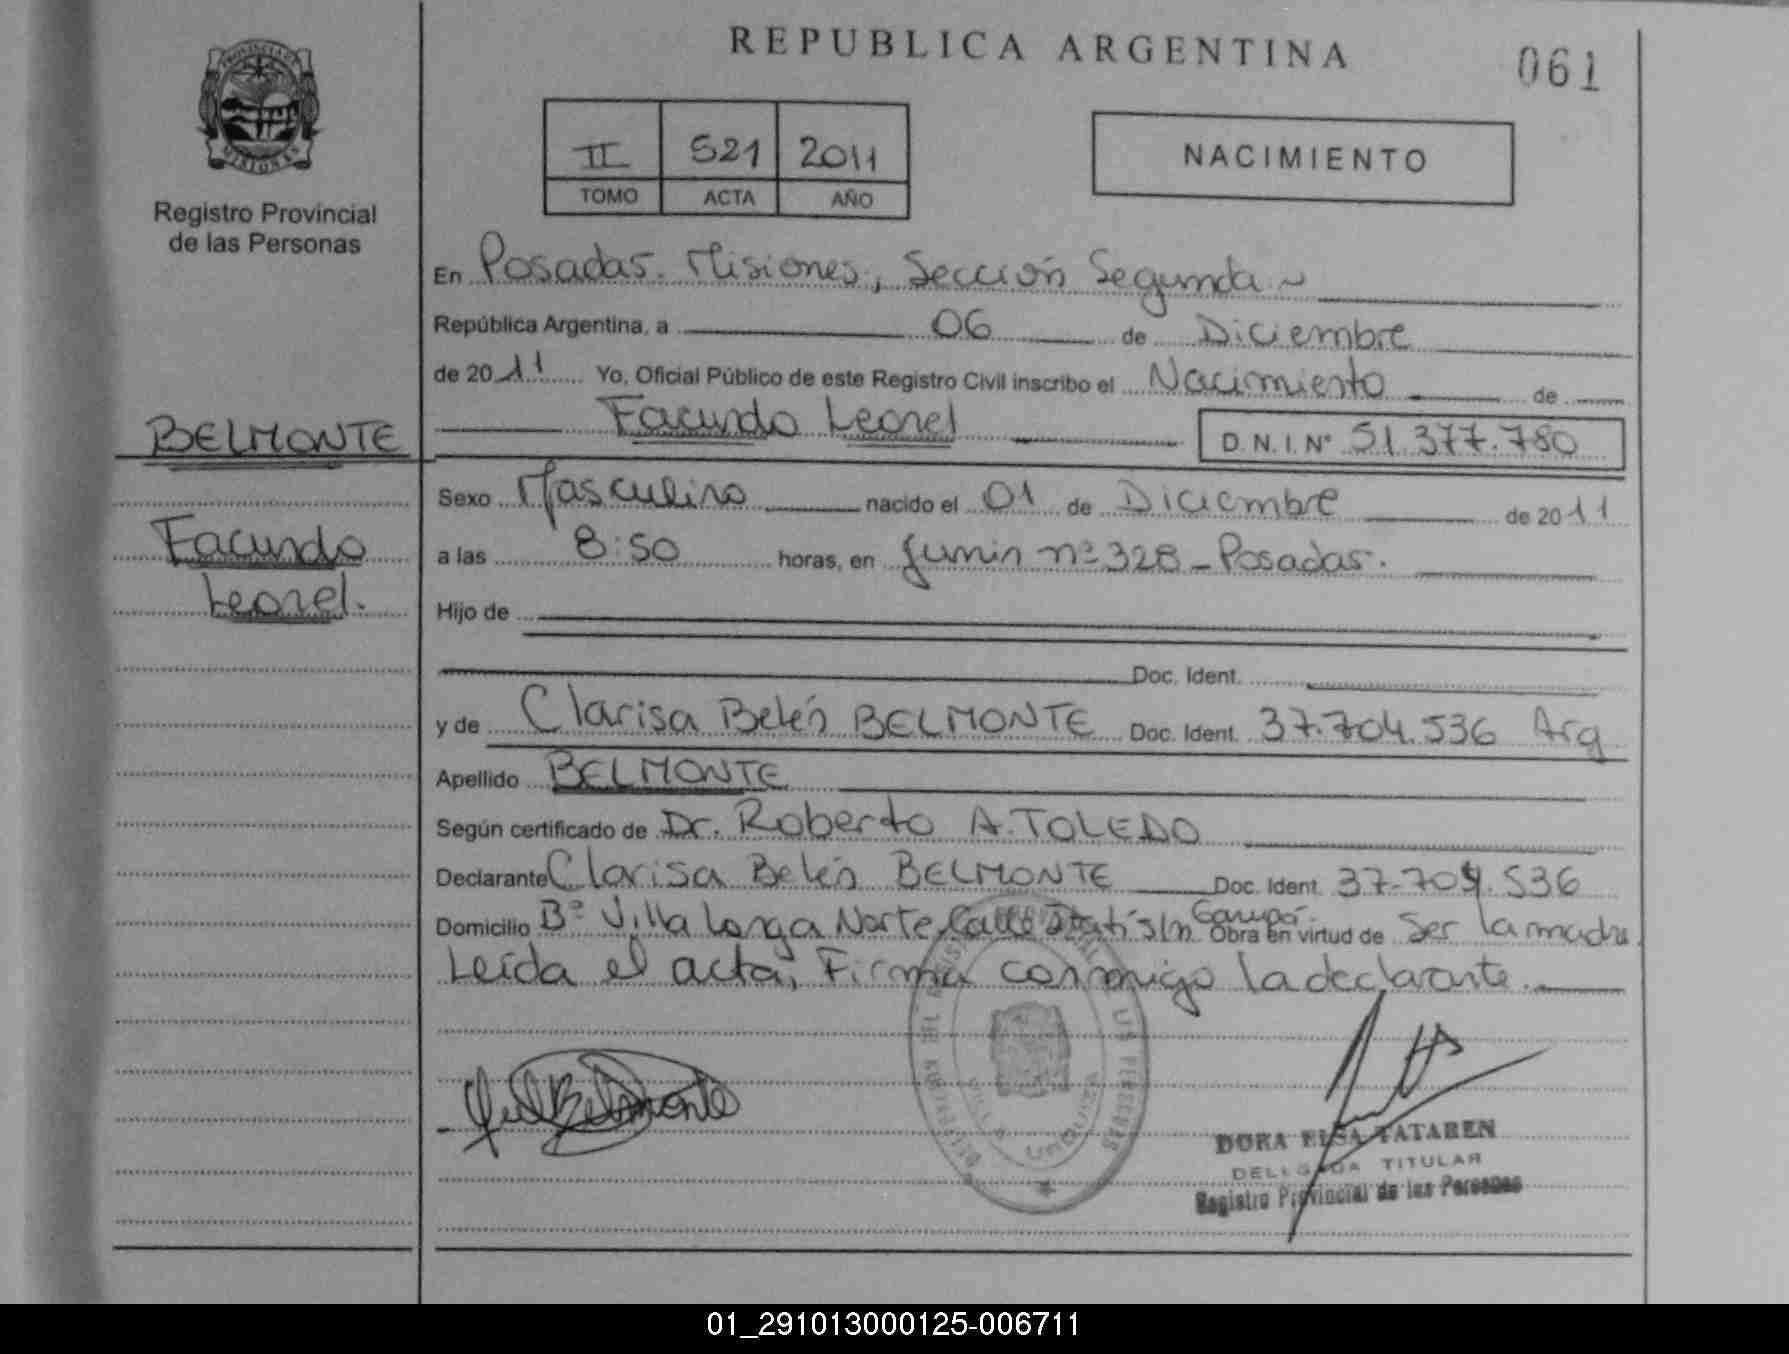 REPUBLICA ARGENTINA
061
PROVINCIA DE
MISIONES
Registro Provincial
de las Personas
II 521 2011
TOMO ACTA AÑO
NACIMIENTO
En Posadas. Misiones, Sección Segunda
República Argentina, a 06 de Diciembre
de 2011 Yo, Oficial Público de este Registro Civil inscribo el Nacimiento de
Facundo Leonel D.N.I.Nº 51.377.780
BELMONTE
Facundo
Leonel.
Sexo Masculino nacido el 01 de Diciembre de 2011
a las 8:50 horas, en Junin nº 328 - Posadas.
Hijo de
Doc. Ident.
y de Clarisa Belén BELMONTE Doc. Ident. 37.704.536 Arg
Apellido BELMONTE
Según certificado de Dr. Roberto A. TOLEDO
Declarante Clarisa Belén BELMONTE Doc. Ident. 37.704.536
Domicilio Bº Villa Longa Norte Calle s/n Garupá. Obra en virtud de Ser la madre.
Leída el acta, Firma conmigo la declarante.
Belmonte
DORA ELSA TATAREN
DELEGADA TITULAR
Registro Provincial de las Personas
01_291013000125-006711